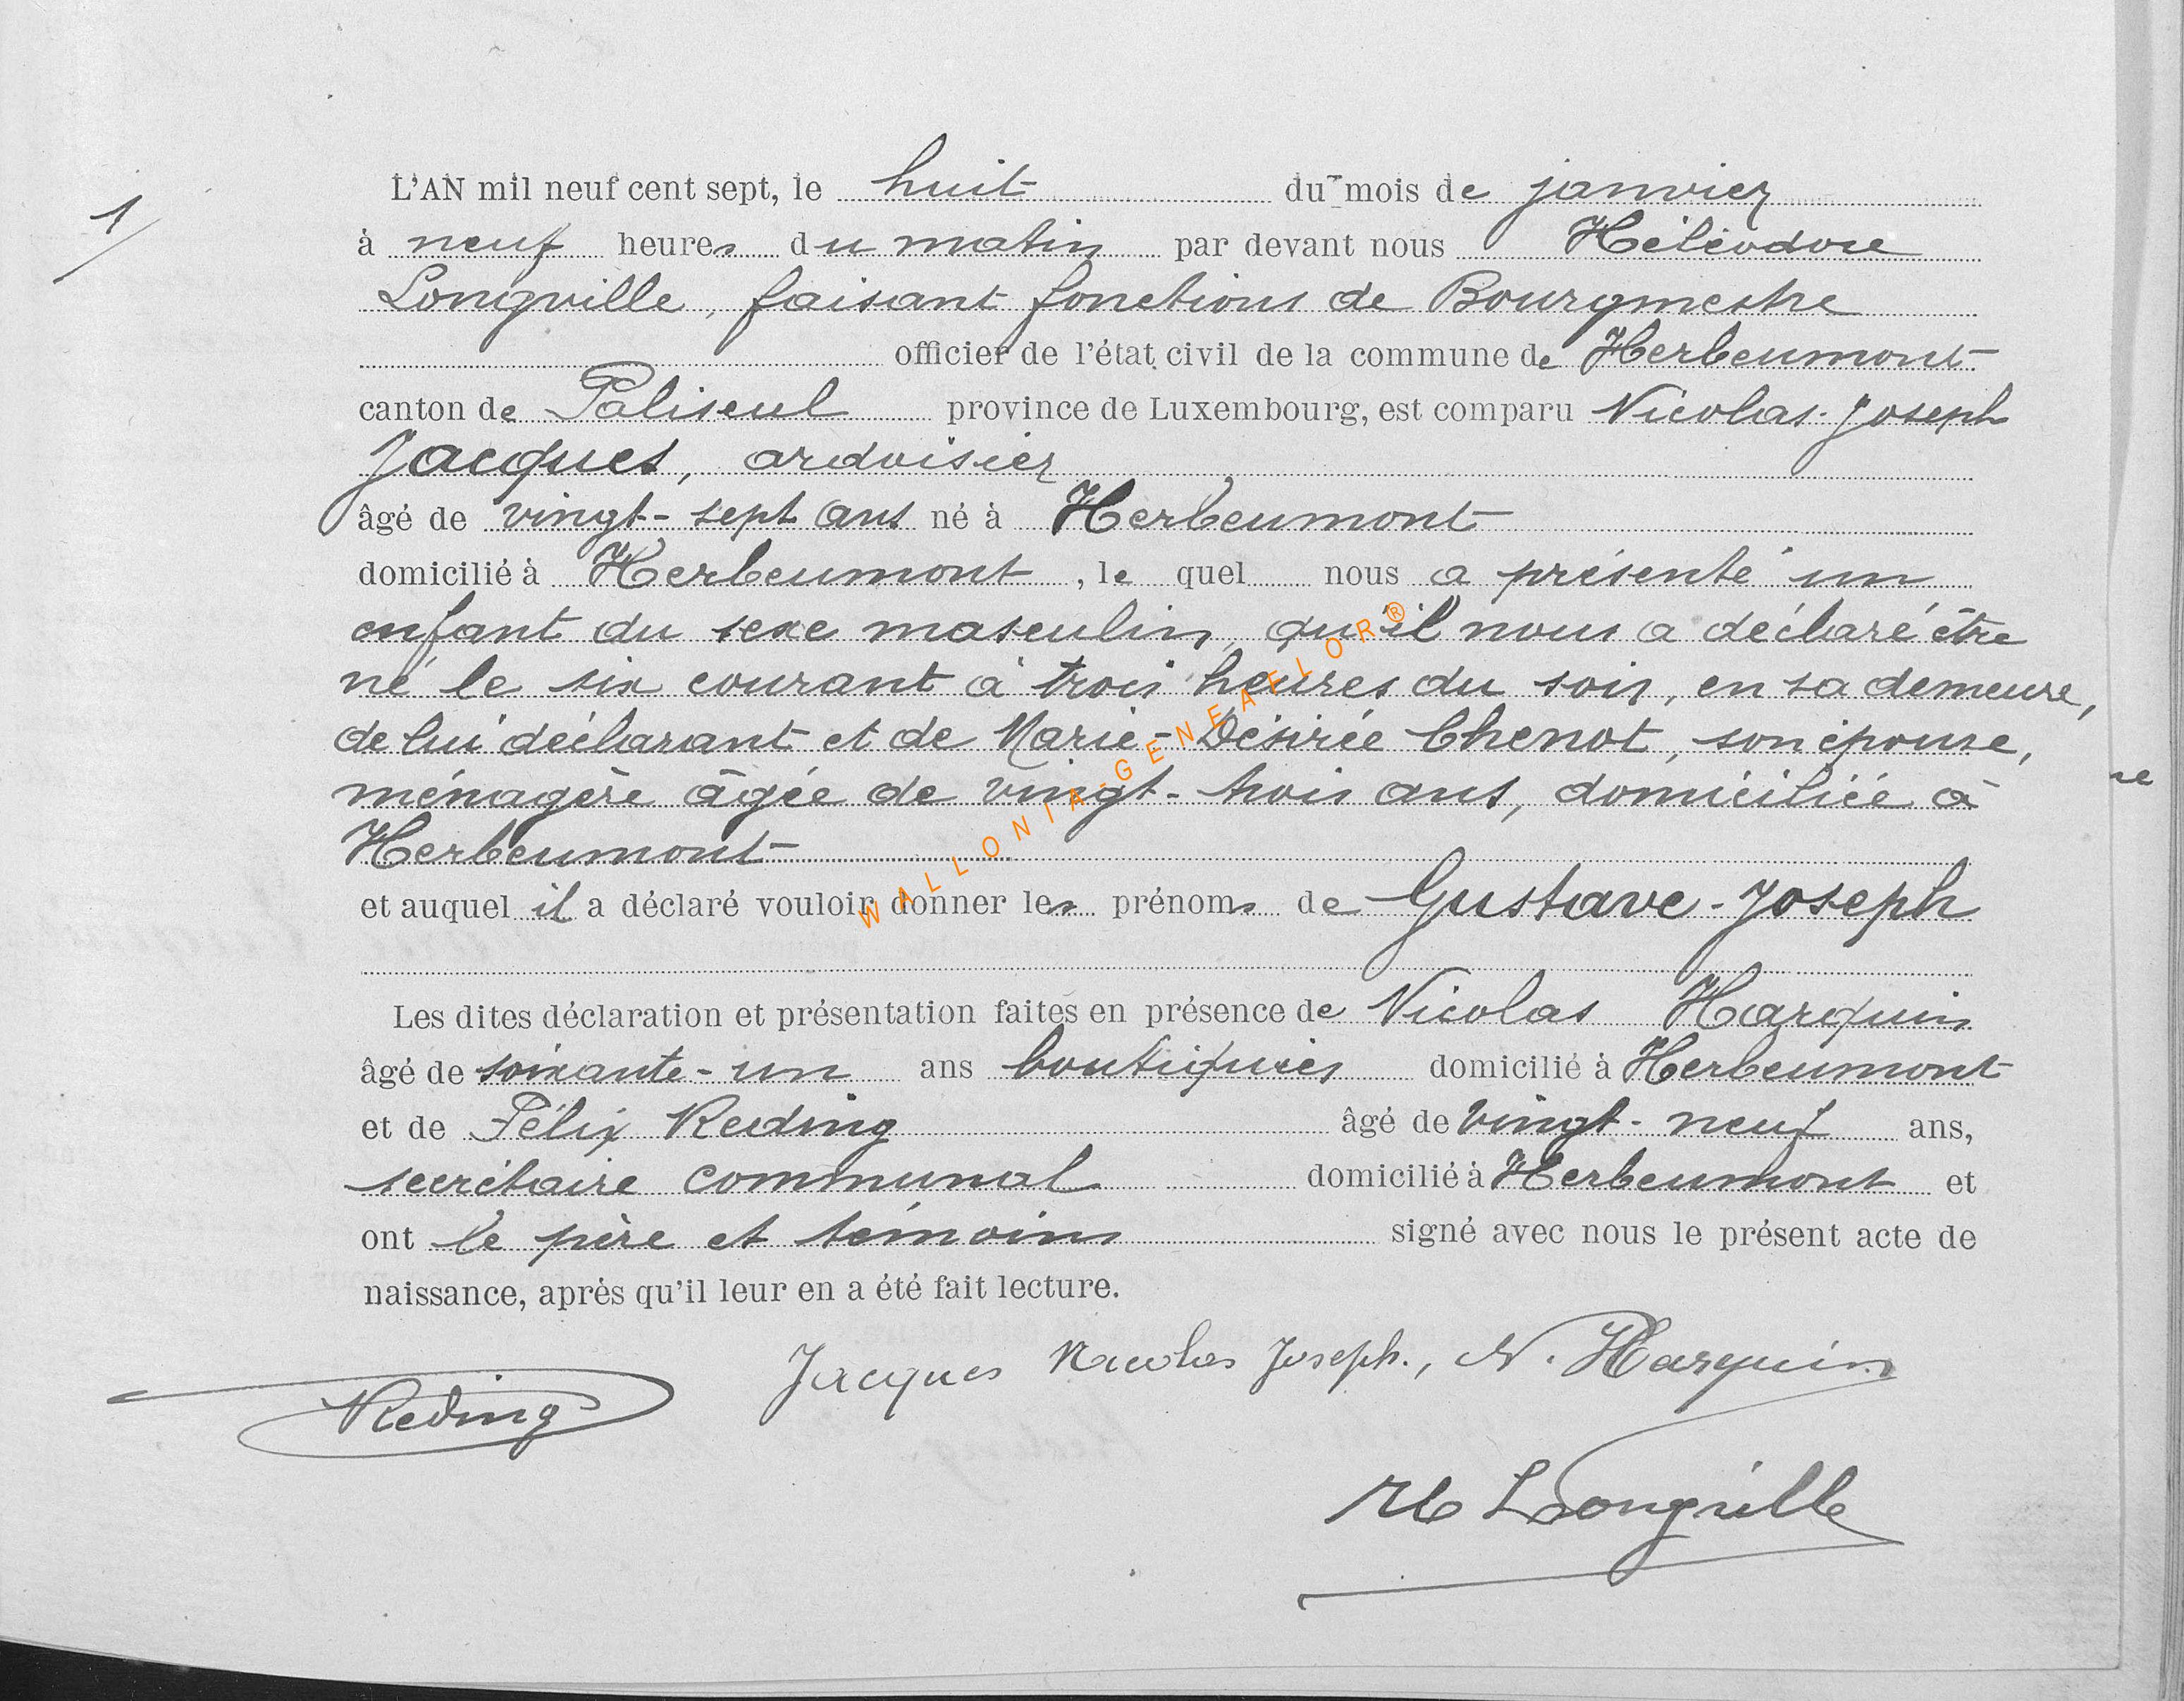 1/
L'AN mil neuf cent sept, le huit du mois de janvier
à neuf heures du matin par devant nous Héliodore
Longville, faisant fonctions de Bourgmestre
officier de l'état civil de la commune de Herbeumont
canton de Paliseul province de Luxembourg, est comparu Nicolas-Joseph
Jacques, ardoisier
âgé de vingt-sept ans né à Herbeumont
domicilié à Herbeumont, le quel nous a présenté un
enfant du sexe masculin, qu'il nous a déclaré être
né le six courant à trois heures du soir, en sa demeure,
de lui déclarant et de Marie-Désirée Chenot, son épouse,
ménagère âgée de vingt-trois ans, domiciliée à
Herbeumont
et auquel il a déclaré vouloir donner les prénoms de Gustave-Joseph
Les dites déclaration et présentation faites en présence de Nicolas Harquin
âgé de soixante-un ans boutiquier domicilié à Herbeumont
et de Félix Reding âgé de vingt-neuf ans,
secrétaire communal domicilié à Herbeumont et
ont le père et témoins signé avec nous le présent acte de
naissance, après qu'il leur en a été fait lecture.
Jacques Nicolas Joseph., N. Harquin
Reding
H Longville
WALLONIA-GENEAFLOR®